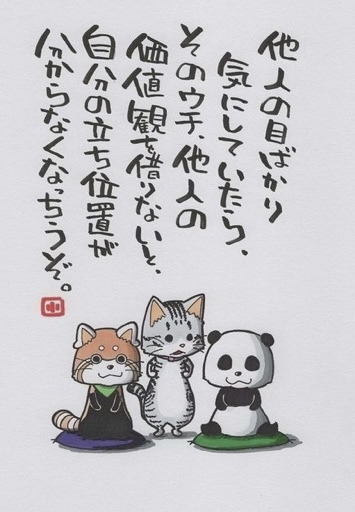 他人の目ばかり
気にしていたら、
そのウチ、他人の
価値観を借りないと、
自分の立ち位置が
分からなくなっちうぞ。